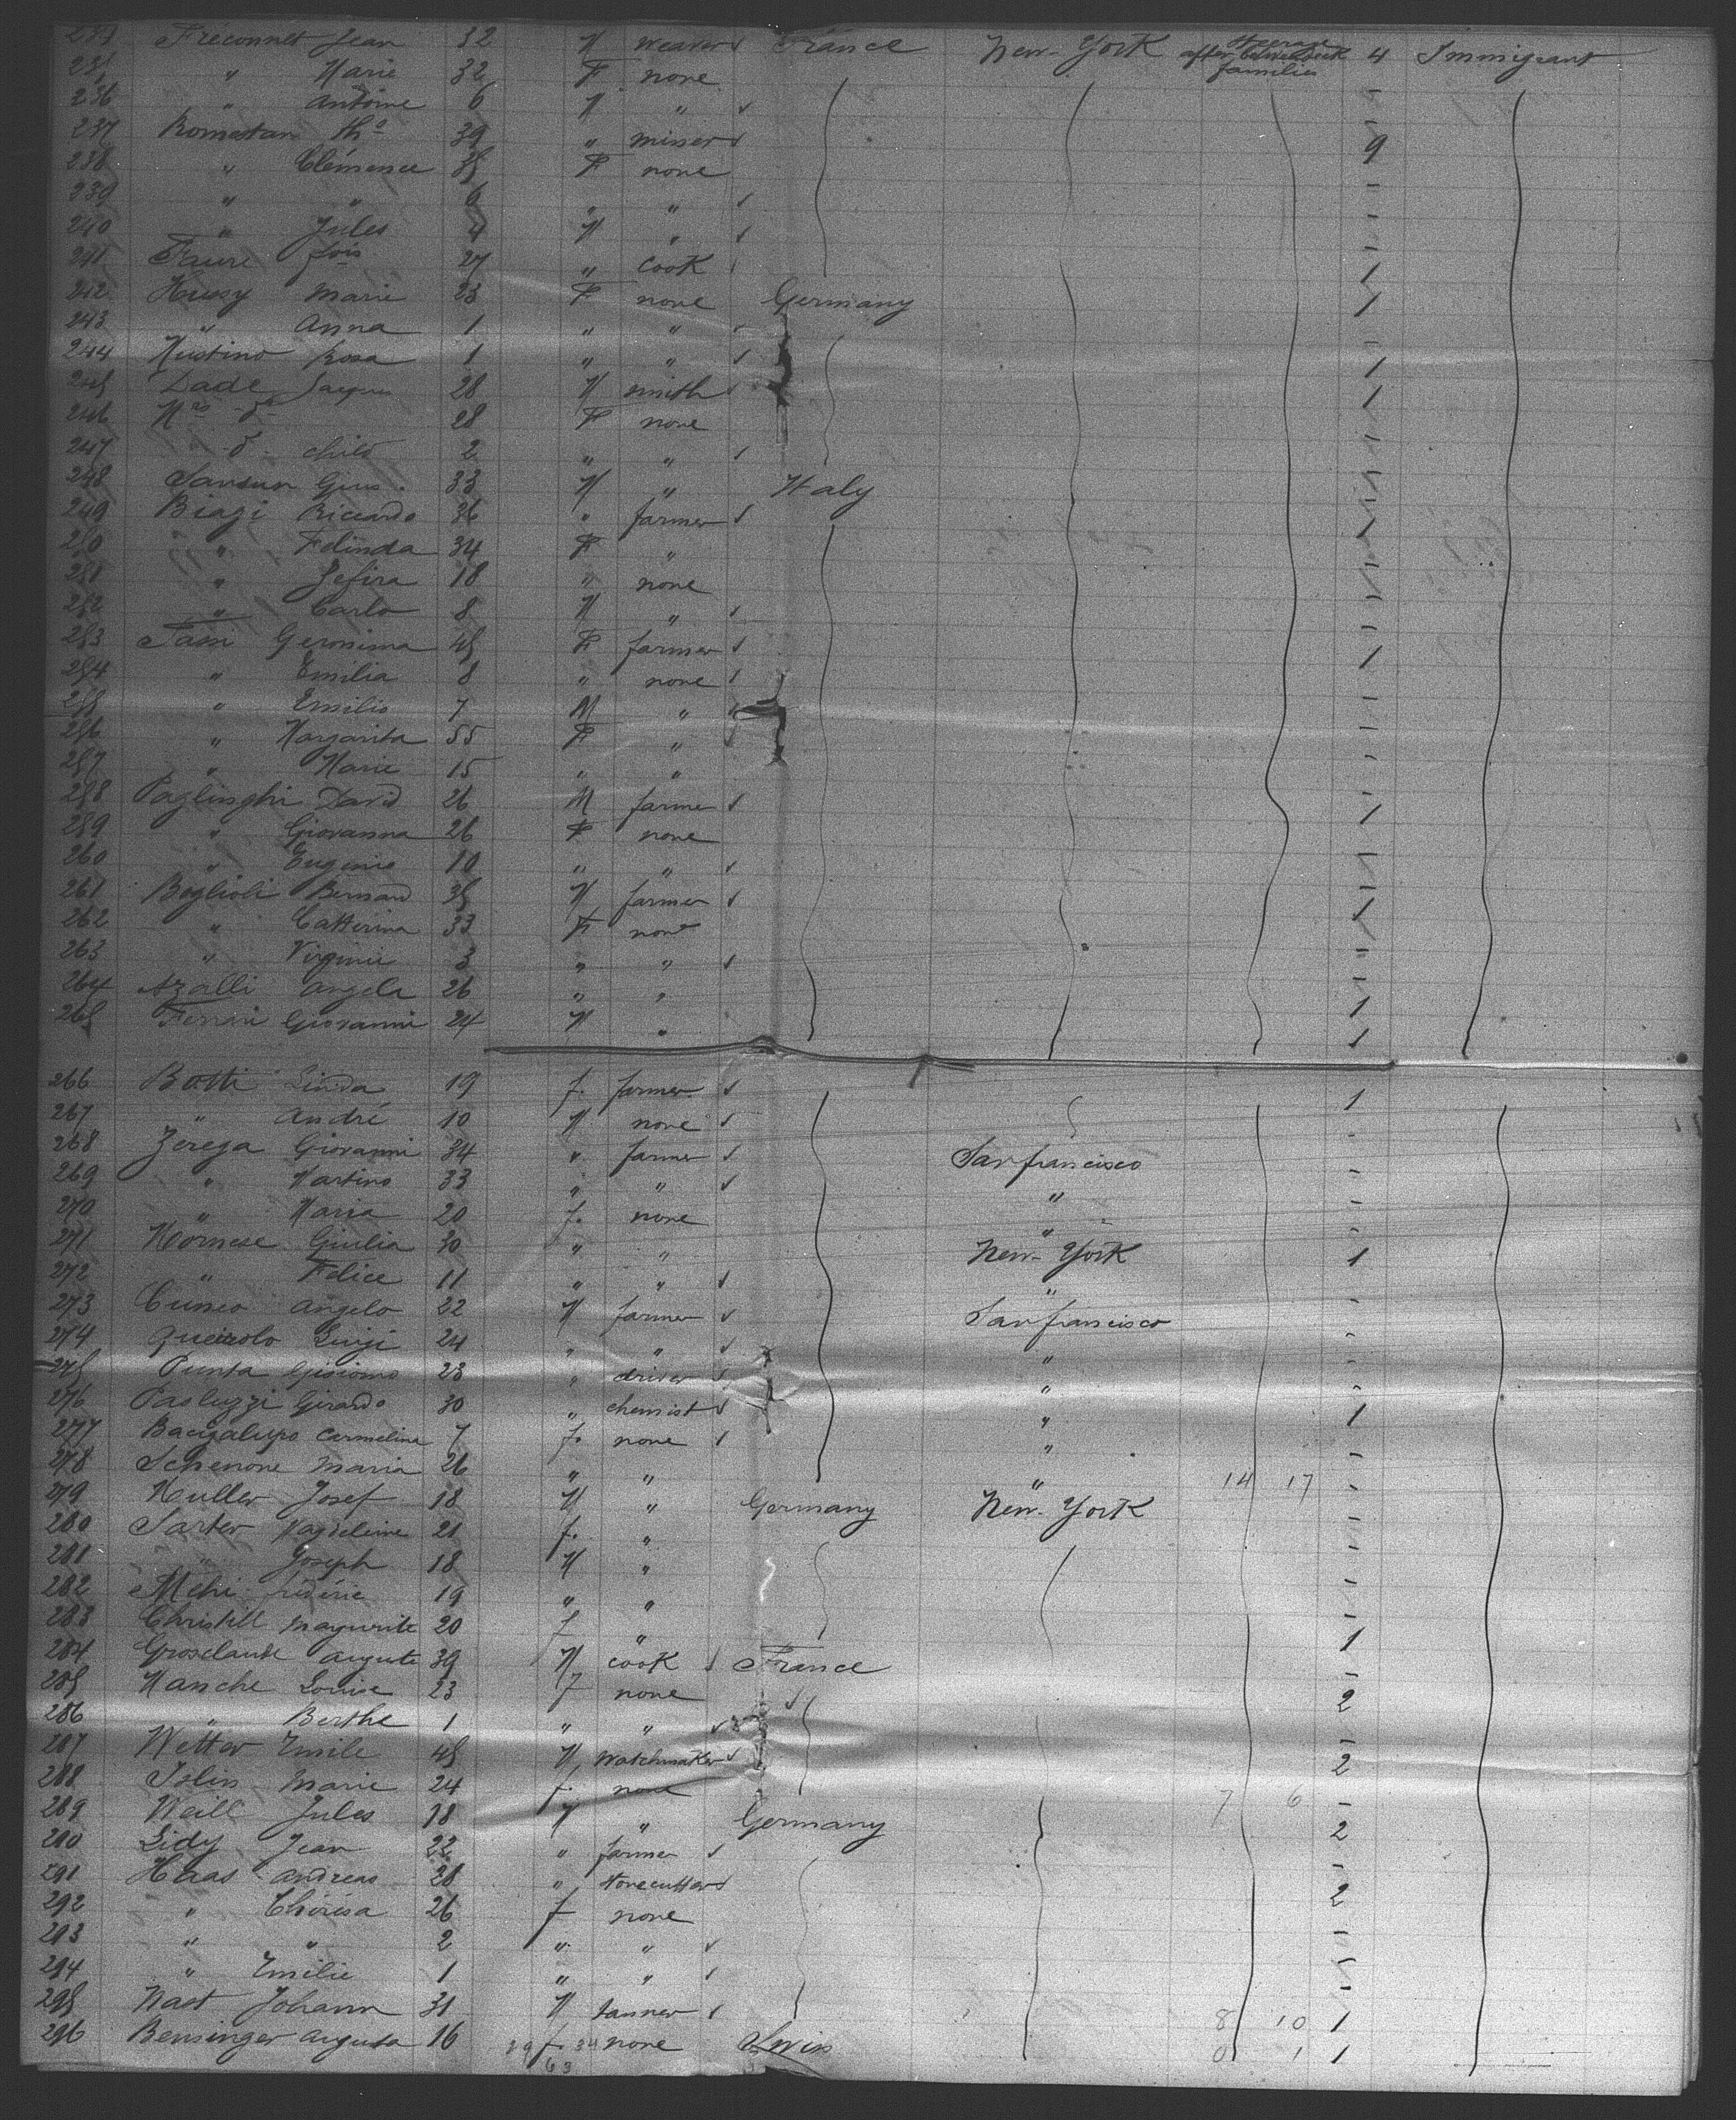 234 Fréconnet Jean 32 M weaver France New-York Steerage after betweendeck families 4 Immigrant
235 " Marie 32 F none -
236 " Antoine 6 M " -
237 Romestan Ths 39 " miner 9
238 " Clémence 35 F none -
239 " " 6 " " -
240 " Jules 4 M " -
241 Faure fois 27 " cook 1
242 Marie 23 F none Germany 1
243 " Anna 1 " " -
244 Mustino Rosa 1 " " 1
245 Dade Jaques 28 M smith 1
246 Mrs d° 28 F none -
247 - d° - child 2 " " -
248 Gius. 33 M " Italy -
249 Biagi Riccardo 36 " farmer 1
250 " Felinda 34 F " -
251 " Zefira 18 " none -
252 " Carlo 8 M " -
253 Geronima 45 F farmer 1
254 " Emilia 8 " none -
255 " Emilio 7 M " -
256 " Margarita 55 F " -
257 " Marie 15 " " -
258 Paglinghi David 26 M farmer 1
259 " Giovanna 26 F none -
260 " Eugenie 10 " " -
261 Boglioli Bernard 35 M farmer 1
262 " Catterina 33 F none -
263 " Virginie 3 " " -
264 Azalli Angela 26 " " 1
265 Ferrari Giovanni 24 M " 1
266 Botti Linda 19 f. farmer 1
267 " André 10 M none -
268 Zerega Giovanni 34 " farmer San francisco -
269 " Martino 33 " " " -
270 " Maria 20 f. none " -
271 Giulia 30 " " New-York 1
272 " Felice 11 " " " -
273 Cuneo Angelo 22 M farmer San francisco -
274 Queirolo Luigi 24 " " " -
275 Punta 23 " driver " -
276 Pasluzzi Girardo 30 " chemist " 1
277 Bacigalupo Carmeline 7 f. none " -
278 Schenone Maria 26 " " " 14 17 -
279 Muller Josef 18 M " Germany New-York -
280 Sarter Magdeleine 21 f. " -
281 " Joseph 18 M " -
282 Mehi fréderic 19 " " -
283 Christill Margurite 20 f " 1
284 Grosclaude Auguste 39 M cook France -
285 Manche Louise 23 f none 2
286 " Berthe 1 " " -
287 Wetter Emile 45 M watchmaker 2
288 Islin Marie 24 f. none 7 6 -
289 Weill Jules 18 M " Germany 2
290 Lidy Jean 22 " farmer -
291 Haas Andreas 28 " stonecutter 2
292 " Thérésa 26 f none -
293 " " 2 " " -
294 " Emilie 1 " " -
295 Nast Johann 31 M tanner 8 10 1
296 Bensinger Augusta 16 29 f. 34 none Swiss 0 1 1
63